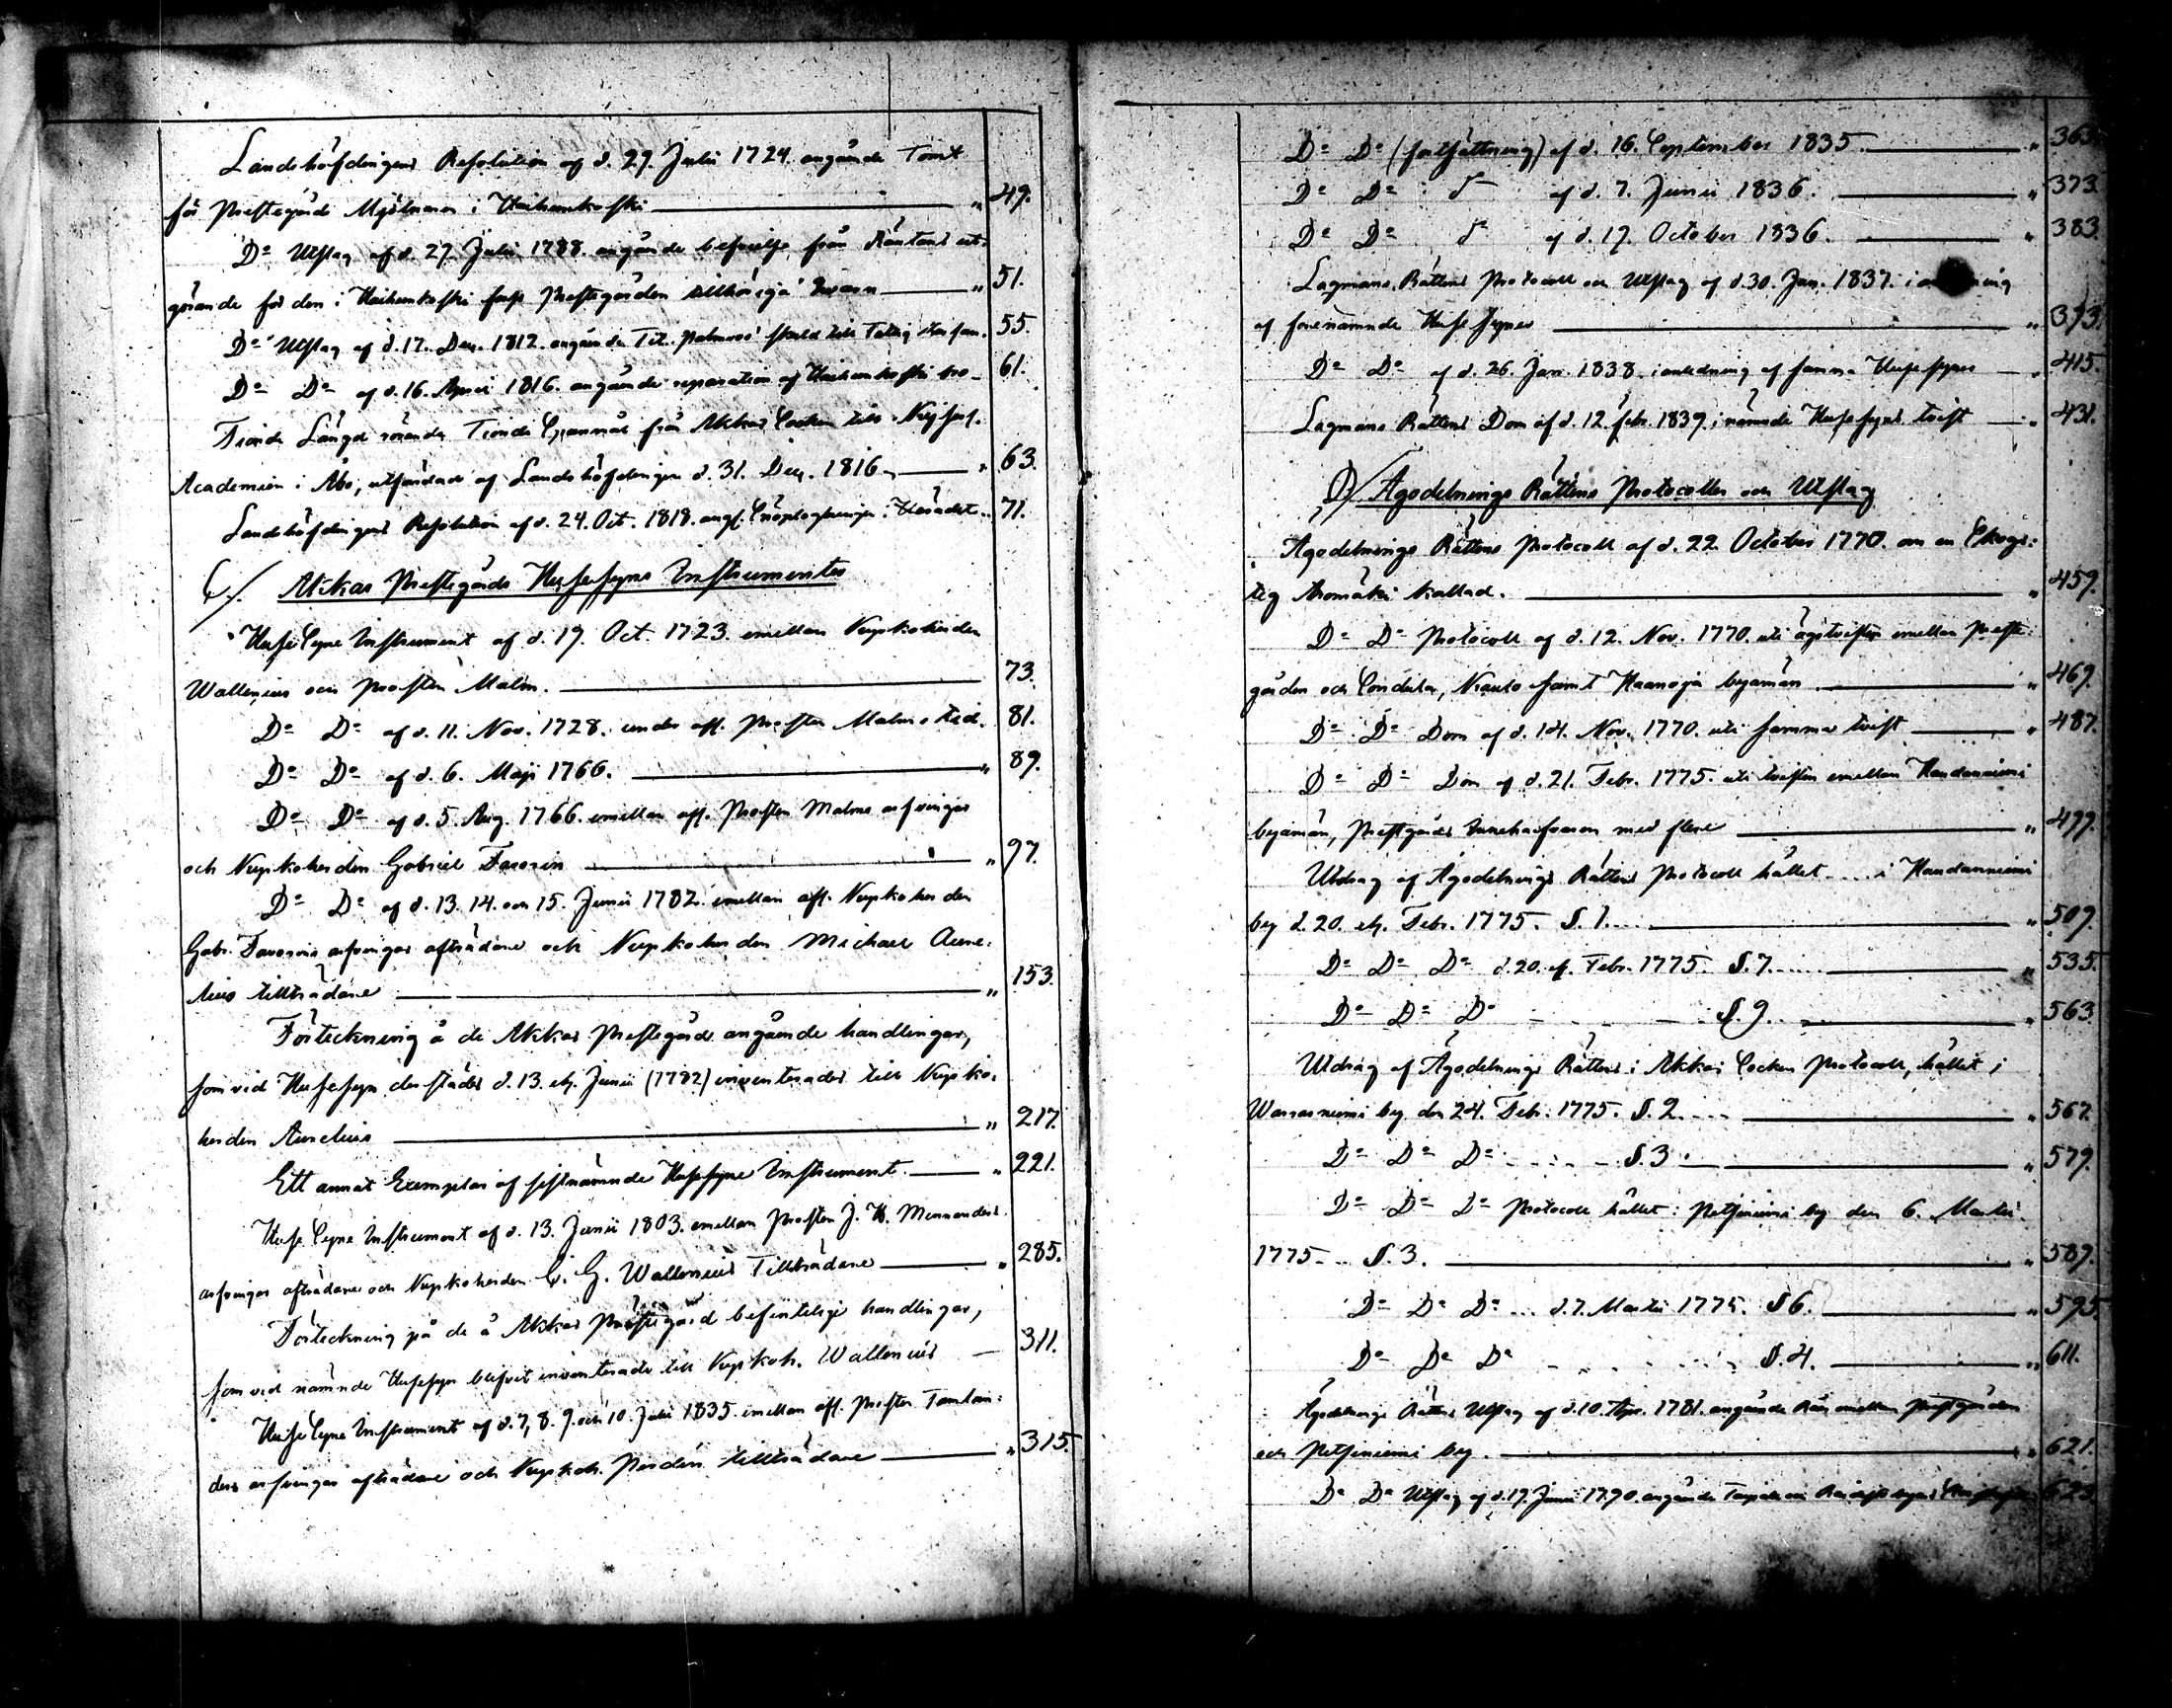 Landshöfdingens Resolution af d. 27. Julii 1724. angående Tomt
för Prestegårds Mjölnaren i Haihunkoski " 49.
Do Utslag af d. 27. Julii 1788. angående befrielse från Räntans ut-
görande för den i Haihunkoski fors Prestegården tillhöriga Qvarn " 51.
Do Utslag af d. 17. Dec. 1812. angående Tit. Palmros' skuld till 55.
Do Do af d. 16. April 1816. angående reparation af Haihunkoski bro 61.
Tionde Längd rörande Tionde Spanmål från Akkas Socken till Kejserl.
Academien i Åbo, utfärdad af Landshöfdingen d. 31. Dec. 1816 " 63.
Landshöfdingens Resolution af d. 24. Oct. 1818. ang. Snöplogningen i Häradet " 71.
C./ Akkas Prestegårds Husesyns Instrumenter
Huse Syns Instrument af d. 19. Oct. 1723. emellan Kyrkoherden
Wallenius och Prosten Malm. 73.
Do Do af d. 11. Nov. 1728. under afl. Prosten Malms tid. 81.
Do Do af d. 6. Maji 1766. " 89.
Do Do af d. 5. Aug. 1766. emellan afl. Prosten Malms arfvingar
och Kyrkoherden Gabriel Favorin " 97.
Do Do af d. 13. 14. och 15. Junii 1782. emellan afl. Kyrkoherden
Gabr. Favorins arfvingar afträdare och Kyrkoherden Michael Aure-
lius tillträdare " 153.
Förteckning å de Akkas Prestegård angående handlingar,
som vid Husesyn derstädes d. 13. etc. Junii (1782) inventerades till Kyrko-
herden Aurelius " 217.
Ett annat Exemplar af sistnämnde Husesyns Instrument. " 221.
Huse Syns Instrument af d. 13. Junii 1803. emellan Prosten J. H. Mennanders
arfvingar afträdare och Kyrkoherden C. G. Wallenius Tillträdare " 285.
Förteckning på de å Akkas Prestegård befintelige handlingar,
som vid nämnde Husesyn blifvit inventerade till Kyrkoh. Wallenius 311.
Huse Syns Instrument af d. 7, 8. 9. och 10. Julii 1835. emellan afl. Prosten Tamlan-
ders arfvingar afträdare och Kyrkoh. Perdén tillträdare " 315.
Do Do (fortsättning) af d. 16. September 1835. " 363.
Do Do do af d. 7. Junii 1836. " 373.
Do Do do af d. 17. October 1836. " 383.
Lagmans Rättens Protocoll och Utslag af d. 30. Jan. 1837. i an ning
af förenämnde Husesyner " 393.
Do Do af d. 26. Jan. 1838. i anledning af samma Husesyner " 415.
Lagmans Rättens Dom af d. 12. febr. 1839, i nämnde Husesyns tvist " 431.
D/ Ägodelnings Rättens Protocoller och Utslag
Ägodelnings Rättens Protocoll af d. 22. October 1770. om en Skogs-
teg kallad. " 459.
Do Do Protocoll af d. 12. Nov. 1770. uti ägotvisten emellan Preste-
gården och Sondula, Kauto samt Haanoja byamän " 469.
Do Do Dom af d. 14. Nov. 1770. uti samma tvist " 487.
Do Do Dom af d. 21. Febr. 1775. uti tvisten emellan Kandanniemi
byamän, Prestgårds Innehafvaren med flere " 499.
Utdrag af Ägodelnings Rättens Protocoll hållet .... i Kandanniemi
by d. 20. etc. Febr. 1775. §. 1.... " 509.
Do Do Do d. 20. etc. Febr. 1775. §. 7..... " 535.
Do Do Do §. 9. " 563.
Utdrag af Ägodelnings Rättens i Akkas Socken Protocoll, hållet i
Warrasniemi by den 24. Febr. 1775. §. 2.... " 567.
Do Do Do §. 3. " 579.
Do Do Do Protocoll hållet i Petsiniemi by den 6. Martii
1775... §. 3. " 589.
Do Do Do ... d. 7. Martii 1775. §. 6. " 595.
Do Do Do §. 4. " 611.
Ägodelnings Rättens Utslag af d. 10. Apr. 1781. angående Rån emellan Prestgården
och Petsiniemi by. " 621.
Do Do Utslag af d. 17. Junii 1790. angående 623.